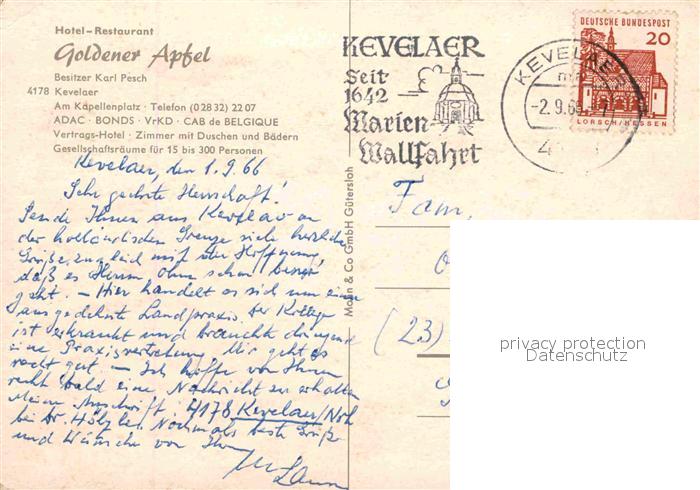 Hotel-Restaurant
Goldener Apfel
Besitzer Karl Pesch
4178 Kevelaer
Am Kapellenplatz · Telefon (0 28 32) 22 07
ADAC · BONDS · VrKD · CAB de BELGIQUE
Vertrags-Hotel · Zimmer mit Duschen und Bädern
Gesellschaftsräume für 15 bis 300 Personen
Kevelaer, den 1.9.66
Sehr geehrte Herrschaft!
Sende Ihnen aus Kevelaer an
der holländischen Grenze viele herzliche
Grüße, zugleich mit der Hoffnung,
daß es Ihnen schon besser
geht. – Hier handelt es sich um eine
ausgedehnte Landpraxis. Der Kollege
ist erkrankt und brauchte dringend
eine Praxisvertretung. Mir geht es
recht gut – Ich hoffe von Ihnen
recht bald eine Nachricht zu erhalten
Meine Anschrift: 4178 Kevelaer/Ndrh
bei Dr. Nochmals beste Grüße
und Wünsche von Ihrem
Mon & Co GmbH Gütersloh
KEVELAER
Seit
1642
Marien-
Wallfahrt
KEVELAER
-2.9.66
DEUTSCHE BUNDESPOST
20
LORSCH/HESSEN
Fam.
(23)
privacy protection
Datenschutz